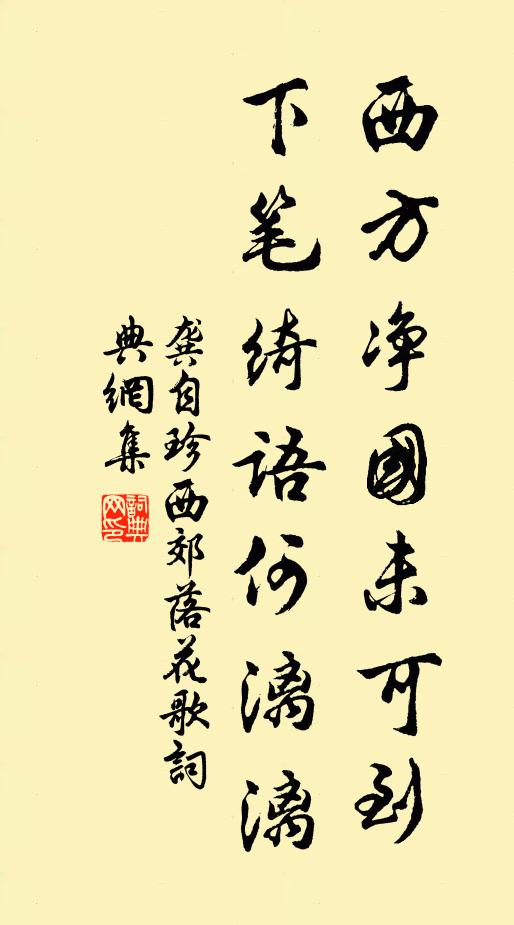 西方净國未可到
下笔绮語何漓漓
龔自珍西郊落花歌詞
典網集
詞典網印